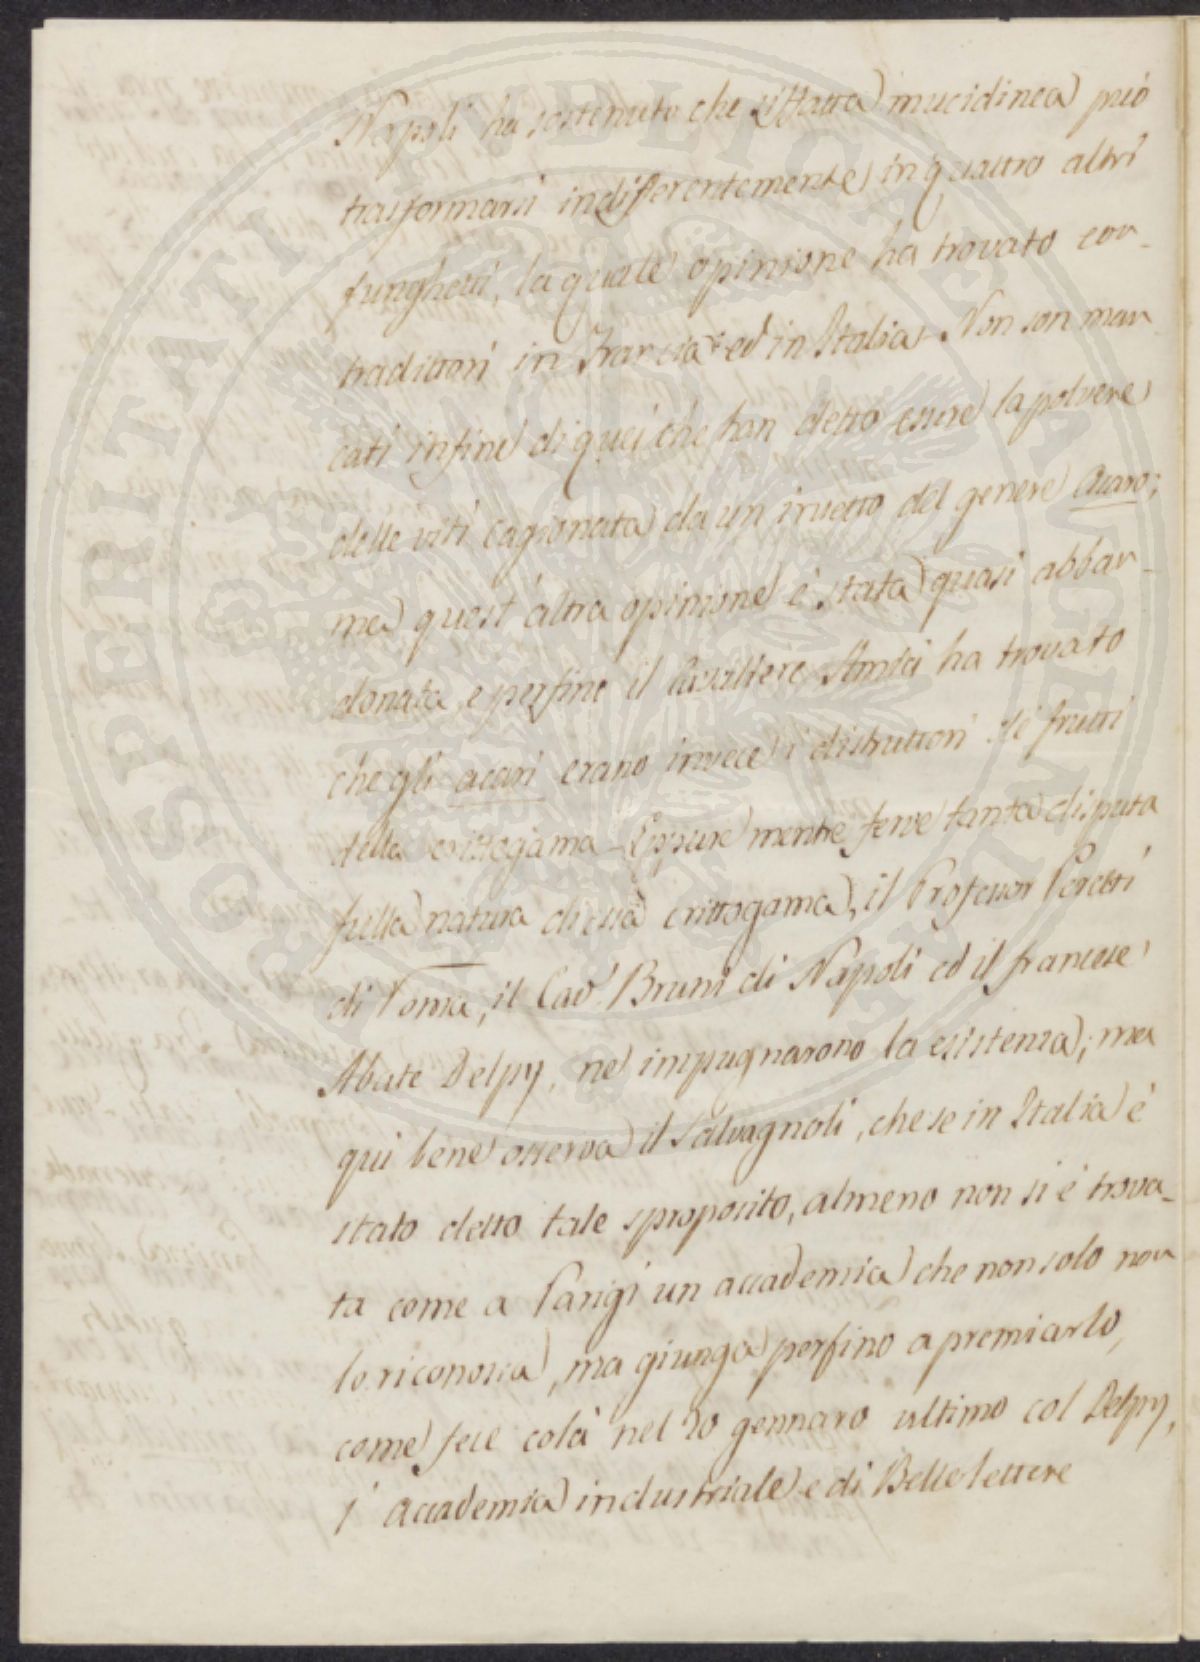 Napoli ha sostenuto che siffatta mucidinea può
trasformarsi indifferentemente in quattro altri
funghetti, la quale opinione ha trovato con-
tradittori in Francia ed in Italia. Non son man
cati infine di quei che han detto essere la polvere
delle viti cagionata da un insetto del genere acaro;
ma quest'altra opinione è stata quasi abban-
donata, e perfino il Cavaliere Amici ha trovato
che gli acari erano invece i distruttori de' frutti
della crittogama - Eppure mentre ferve tanta disputa
sulla natura di essa crittogama, il Professor Peretti
di Roma, il Cav. Bruni di Napoli ed il francese
Abate Delpy, ne impugnarono la esistenza; ma
qui bene osserva il Salvagnoli, che se in Italia è
stato detto tale sproposito, almeno non si è trova-
ta come a Parigi un accademia che non solo non
lo riconosca, ma giunga perfino a premiarlo,
come fece colà nel 20 gennaro ultimo col Delpy,
l'accademia industriale e di Belle lettere
PROSPERITATI PUBLICAE AUGENDAE